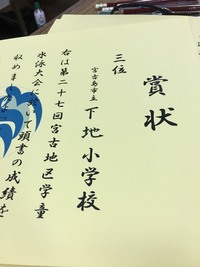 賞状
三位
宮古島市立
下地小学校
右は第二十七回宮古地区学童
水泳大会に於いて頭書の成績を
収めました